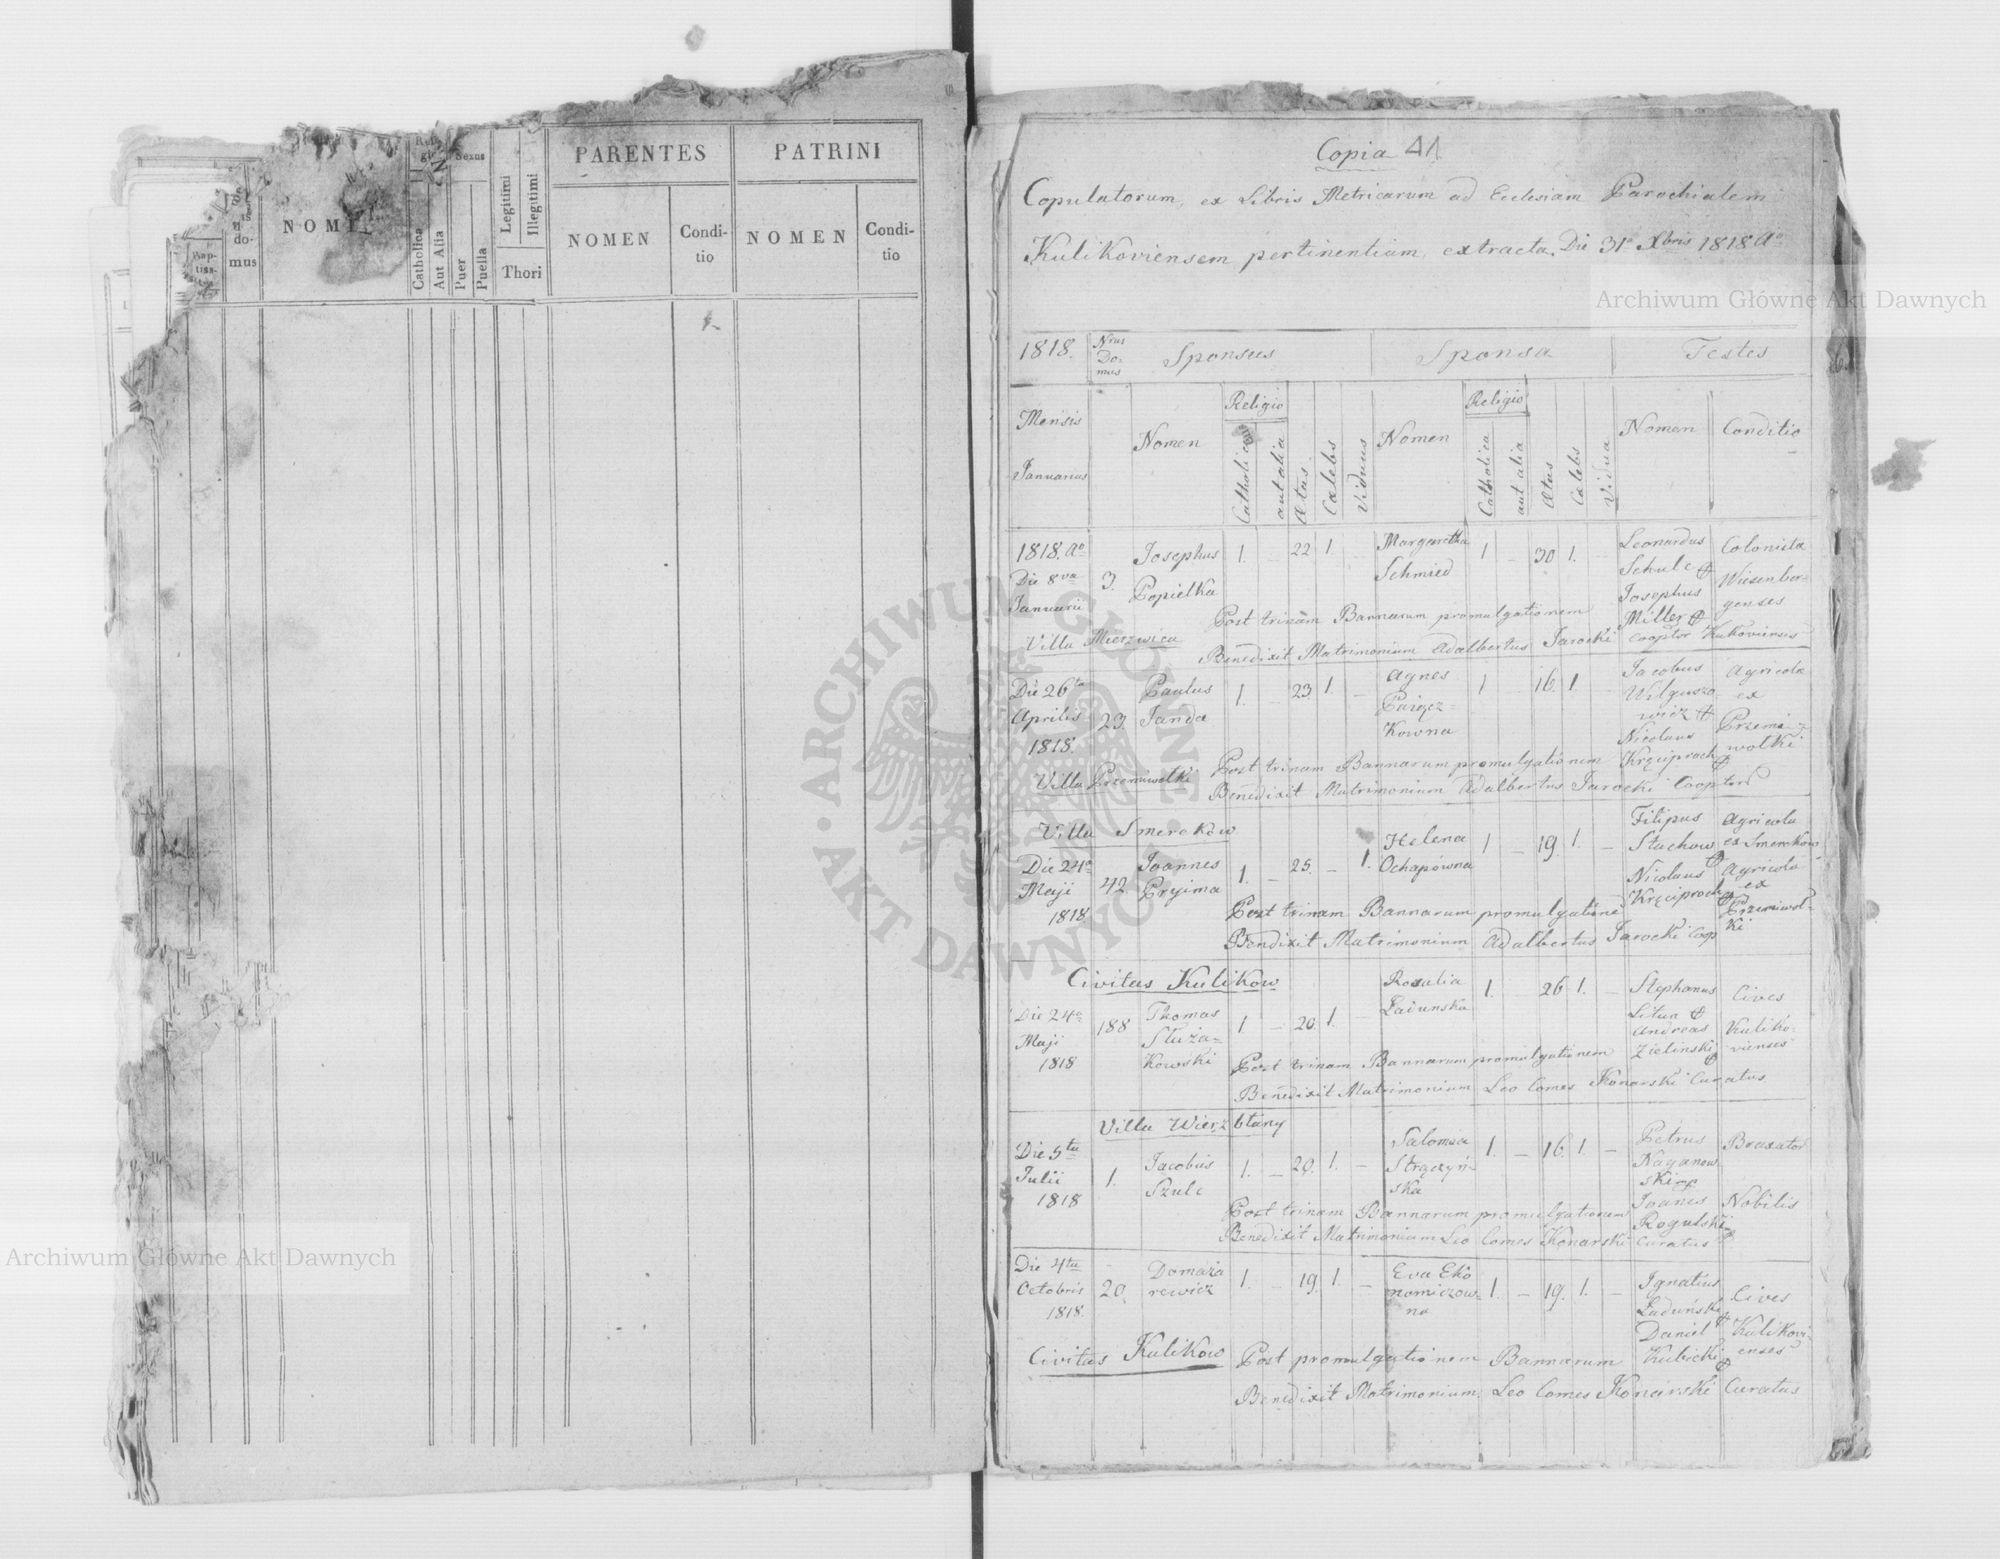 PARENTES
PATRINI
NOMEN
Condi-
tio
NOMEN
Condi-
tio
do-
mus
Catholica
Aut Alia
Puer
Puella
Sexus
Legitimi
Illegitimi
Thori
Copia 41
Copulatorum, ex Libris Metricarum ad Ecclesiam Parochialem
Kulikoviensem pertinentium, extracta. Die 31a Xbris 1818 Ao
Archiwum Główne Akt Dawnych
1818.
Nrus
Do-
mus
Sponsus
Sponsa
Testes
Mensis
Januarius
Nomen
Religio
Catholica
aut alia
Ætas
Cælebs
Viduus
Nomen
Religio
Catholica
aut alia
Ætas
Cælebs
Vidua
Nomen
Conditio
1818. Ao
Die 8va
Januarii
3.
Josephus
Popielka
1. – 22 1. –
Margaretha
Schmied
1 – 30 1. –
Leonardus
Schulc
Josephus
Miller
Colonistæ
Wiesenber-
genses
Villa Mierzwica
Post trinam Bannarum promulgationem
Benedixit Matrimonium Adalbertus Jarocki Cooptor Kukoviensis
Die 26ta
Aprilis
1818.
23.
Paulus
Janda
1. – 23. 1. –
Agnes
Kowna
1 – 16. 1. –
Jacobus
Wilgusze
wicz
Nicolaus
Kręciproch
Agricolæ
ex
Przemi-
wolki
Villa Przemiwolki
Post trinam Bannarum promulgationem
Benedixit Matrimonium Adalbertus Jarocki Cooptor
Villa Smereków
Die 24a
Maji
1818.
42.
Joannes
Pryima
1. – 25. – 1.
Helena
Ochapówna
1 – 19. 1. –
Filipus
Stachow
Nicolaus
Kręciproch
Agricola
ex Smereków
Agricola
ex
Przemiwol-
ki
Post trinam Bannarum promulgatione
Bendixit Matrimonium Adalbertus Jarocki Coop
Civitas Kulikow
Die 24a
Maji
1818
188
Thomas
Słuza-
kowski
1 – 20. 1. –
Rosalia
Ładunska
1. – 26 1. –
Stephanus
Litun
Andreas
Zielinski
Cives
Kuliko-
vienses
Post trinam Bannarum promulgationem
Benedixit Matrimonium Leo Comes Konarski Curatus
Villa Wierzblany
Die 5ta
Julii
1818
1.
Jacobus
Szulc
1. – 20. 1. –
Salomea
Strączyń-
ska
1. – 16. 1. –
Petrus
Naganow
ski
Joanes
Rogulski
Braxator
Nobilis
Post trinam Bannarum promulgationem
Benedixit Matrimonium Leo Comes Konarski Curatus
Die 4ta
Octobris
1818.
20.
Domaza
rewicz
1. – 19. 1. –
Eva Eko
nomiczow-
na
1. – 19. 1. –
Ignatius
Ładuński
Daniel
Kubicki
Cives
Kulikovi-
enses
Civitas Kulikow
Post promulgationem Bannarum
Benedixit Matrimonium Leo Comes Konarski Curatus
Archiwum Główne Akt Dawnych
ARCHIWUM GŁÓWNE · AKT DAWNYCH ·